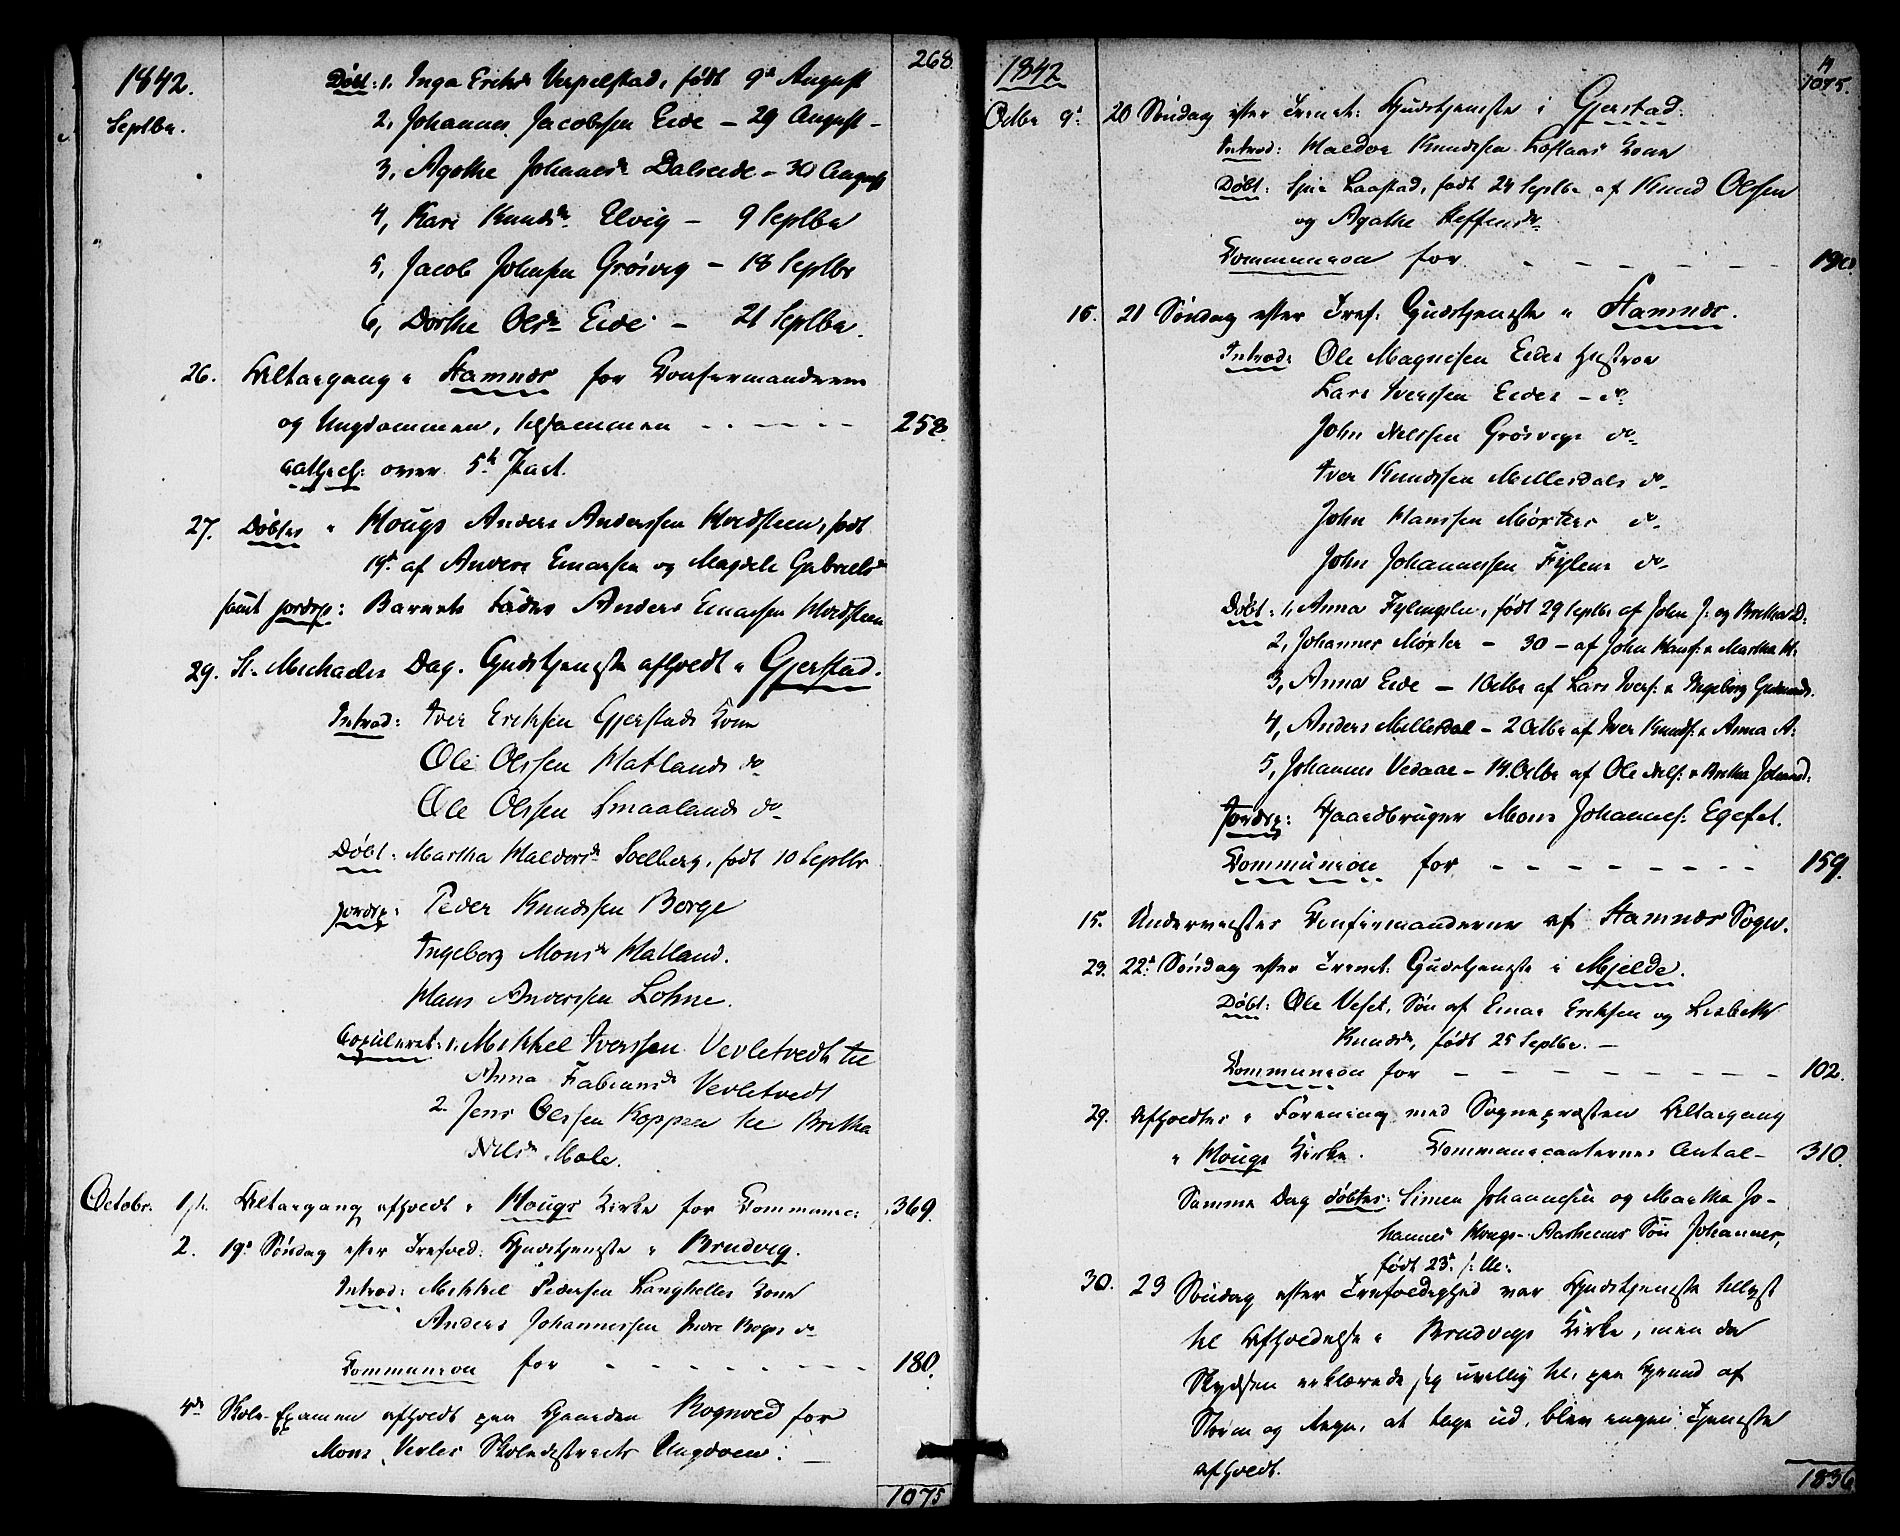 268.
1842.
Septbr.
Döbt: 1. Inga Eriksd. Verpelstad, födt 9de August
2, Johannes Jacobssen Eide — 29 August —
3, Agathe Johanesdr Dalseide — 30 August
4, Kari Knudsdr Elvig — 9 Septbr
5, Jacob Johnsen Grösvig — 18 Septbr
6, Dorthe Olsdr Eide — 21 Septbr.
26. Altergang i Stamnæs for Confirmanderne
og Ungdommen, tilsammen 258.
Cathech: over 5te Part.
27. Döbtes i Hougs Anders Anderssen Hordsteen, födt
19de af Anders Einarsen og Magdele Gabrielsdr
samt jordsp: Barnets Fader Anders Einarsen Hordsteen
29. St. Michaelis Dag. Gudstjeneste afholdt i Gjerstad.
Introd: Iver Eriksen Gjerstads Kone
Ole Olssen Hatlands do
Ole Olssen Smaalands do
Döbt: Martha Haldorsdr Solberg, födt 10 Septbr
jordsp: Peder Knudssen Borge
Ingeborg Monsdr Hatland.
Hans Anderssen Lohne.
Copuleret: 1. Mikkel Iverssen Vevletvedt til
Anna Fabiansdr Vevletvedt
2. Jens Olssen Koppen til Britha
Nilsdr Mole.
Octobr. 1ste Altergang afholdt i Hougs Kirke for Commune: 369.
2. 19de Söndag efter Trefold: Gudstjeneste i Brudvig.
Introd: Mikkel Pedersen Langhelles Kone
Anders Johannessen Indre Boges do
Communion for 180.
4de Skole-Examen afholdt paa Gaarden Bogsved for
Mons Verles Skoledistricts Ungdom.
1075
1842
1075.
Octbr 9de 20 Söndag efter Trinit: Gudstjeneste i Gjerstad.
Introd: Haldor Knudssen Loftaas Kone
Döbt: Laastad, födt 24 Septbr af Knud Olssen
og Agathe Steffensdr
Communion for 190.
16. 21 Söndag efter Tref. Gudstjeneste i Stamnæs.
Introd: Ole Magnesen Eides Hustroe
Lars Iverssen Eides — do
John Nilssen Grösvigs do
Iver Knudssen Millesdals do
John Hanssen Möxters do
John Johannessen Fylings do
Döbt: 1, Anna Fylingslie, födt 29 Septbr af John J: og Britha D:
2, Johannes Möxter — 30 — af John Hans: & Martha H:
3, Anna Eide — 1 Octbr af Lars Ivers: & Ingeborg Gudmunds.
4, Anders Millesdal — 2 Octbr af Iver Knuds: & Anna A:
5, Johannes Vedaae — 14. Octbr af Ole Nils: & Britha Johannd:
Jordsp: Gaardbruger Mons Johannes: Egeset.
Communion for 159.
15. Underviistes Confirmanderne af Stamnæs Sogn.
23. 22de Söndag efter Trinit: Gudstjeneste i Mjelde.
Döbt: Ole Veset, Sön af Einar Eriksen og Lisbeth
Knudsdr, födt 25 Septbr. —
Communion for 102.
29. Afholdtes i Forening med Sognepræsten Altergang
i Hougs Kirke. Communicanternes Antal — 310.
Samme Dag döbtes: Simen Johannessen og Martha Jo-
hannes Hougs-Aasheims Sön Johannes,
födt 23de
30. 23 Söndag efter Trefoldighed var Gudstjeneste tillyst
til Afholdelse i Brudvigs Kirke, men da
Skydsen erklærede sig uvillig til, paa Grund af
Storm og Regn, at tage ud, blev ingen Tjeneste
afholdt.
1836